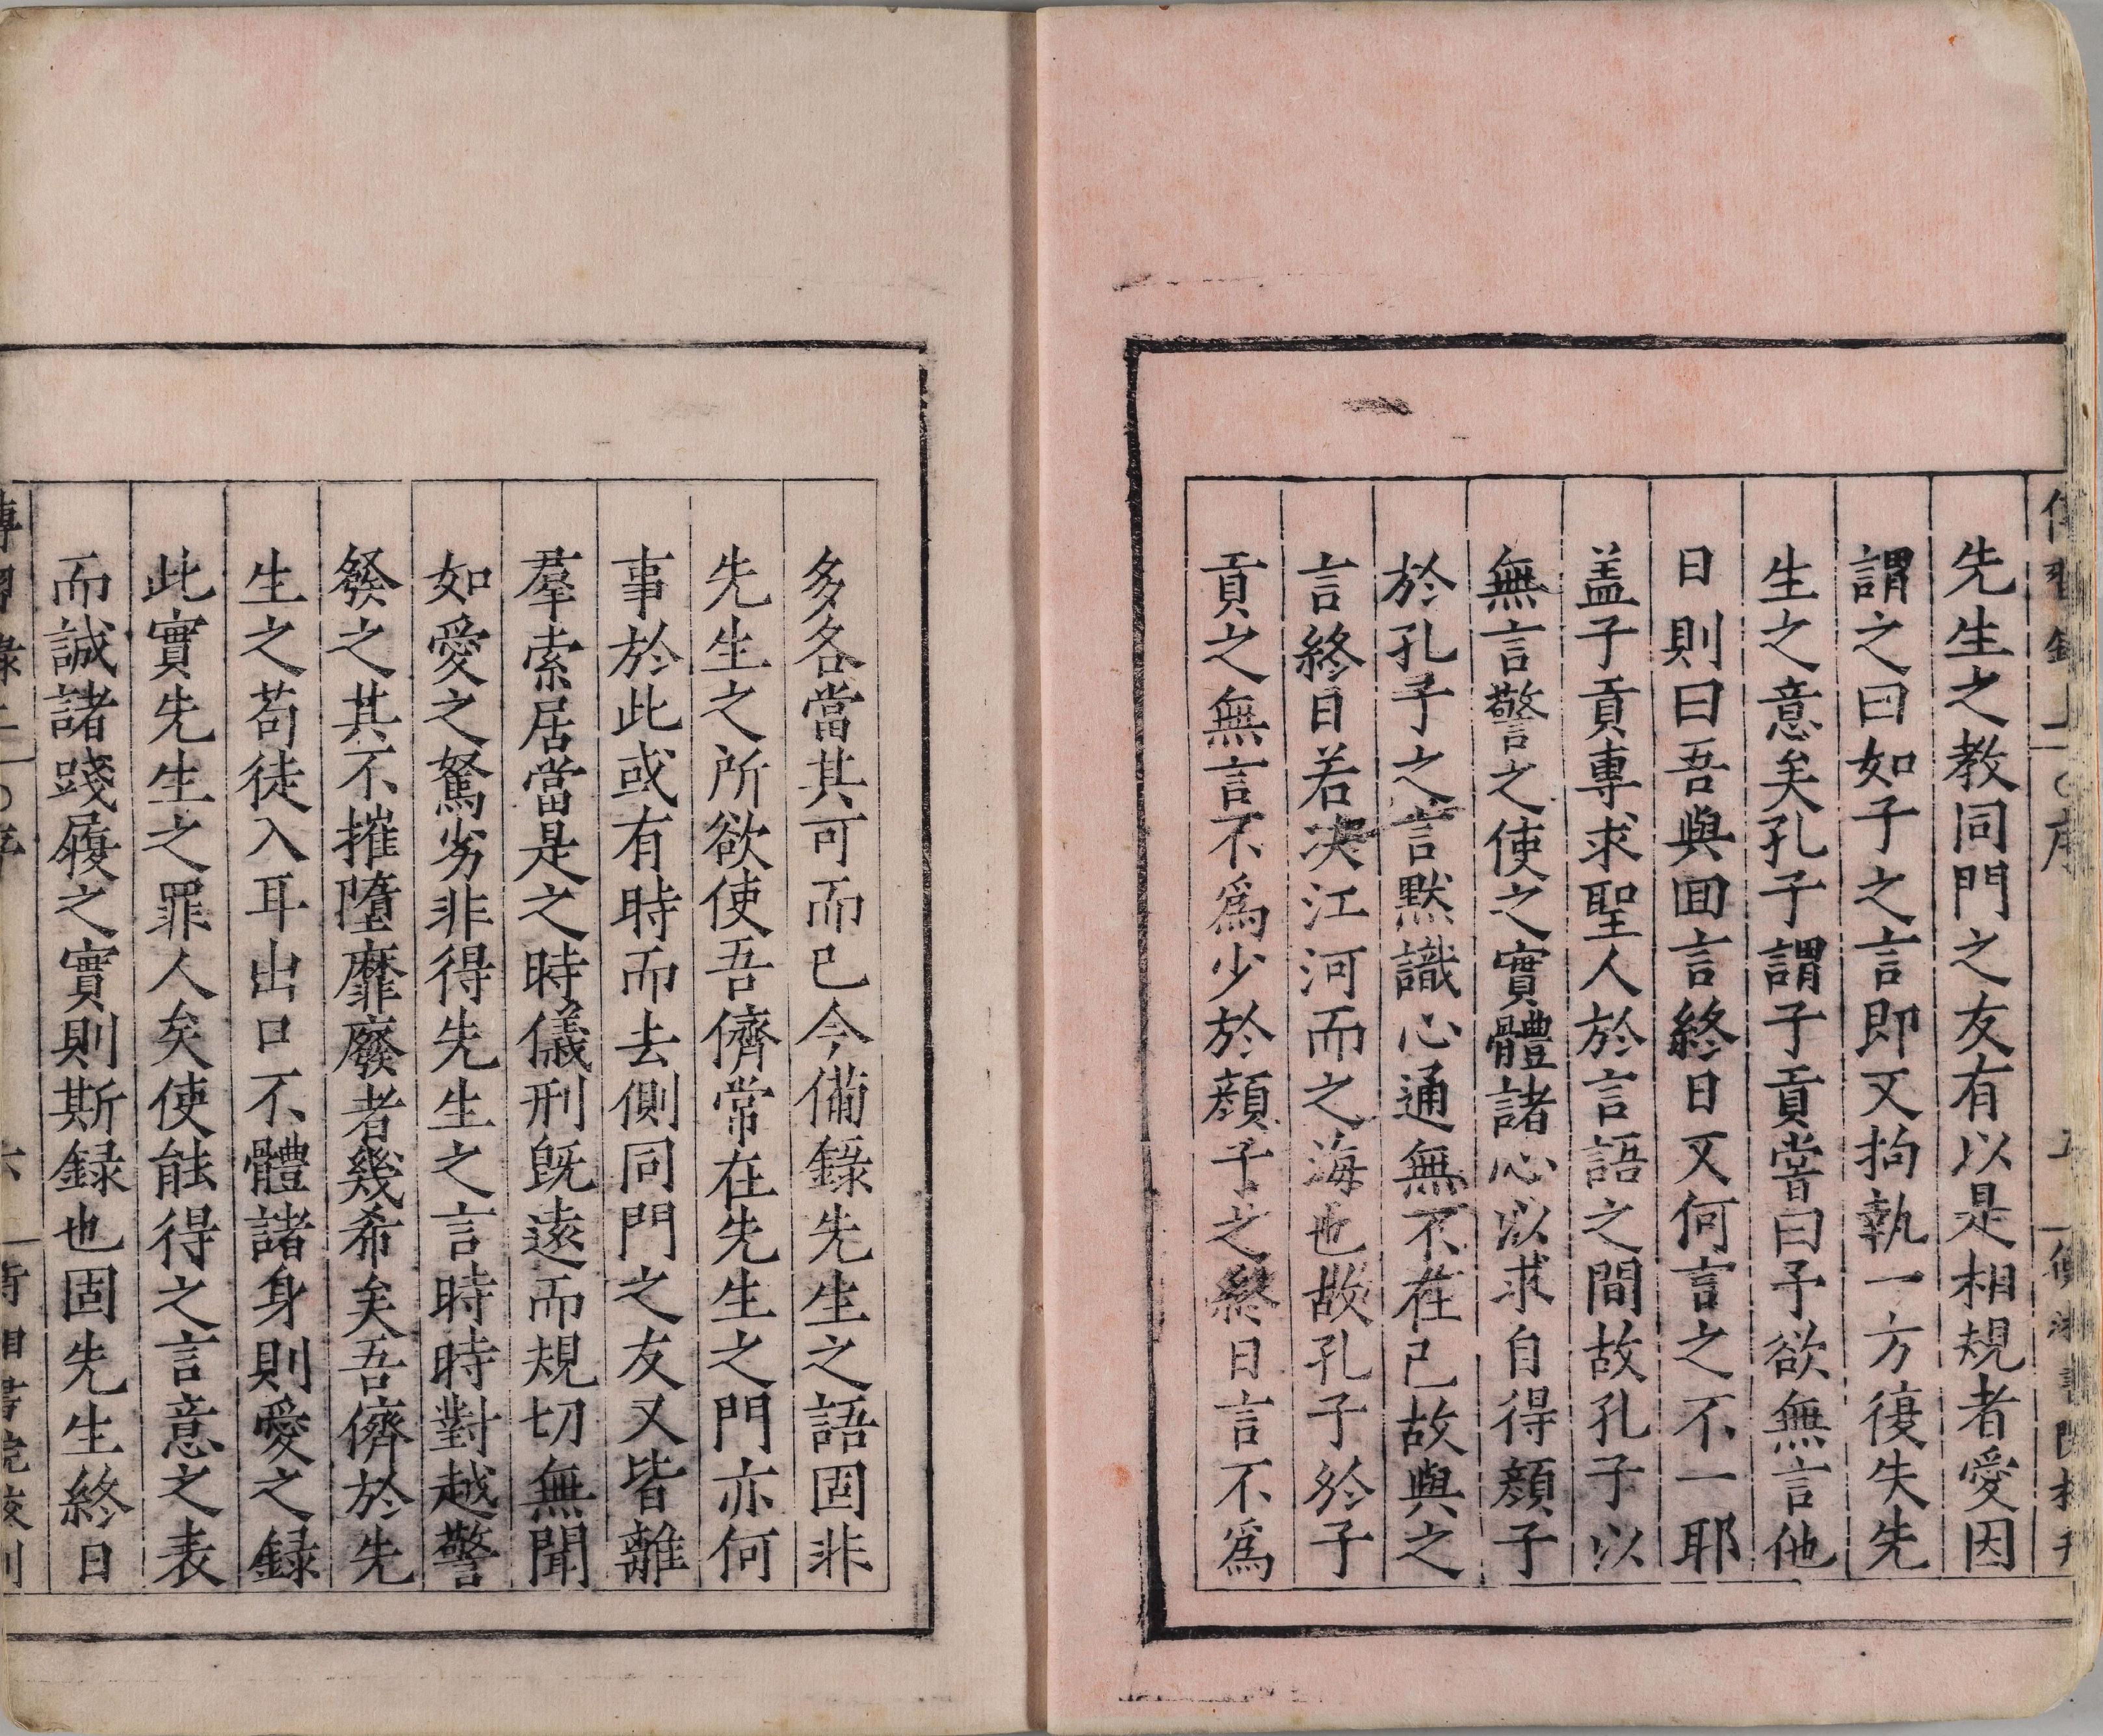 先生之教同門之友有以是相規者愛因
謂之曰如子之言即又拘執一方復失先
生之意矣孔子謂子貢嘗曰予欲無言他
日則曰吾與囬言終日又何言之不一耶
盖子貢專求聖人於言語之間故孔子以
無言警之使之實體諸心以求自得顔子
於孔子之言默識心通無不在已故與之
言終日若决江河而之海也故孔子於子
貢之無言不爲少於顔子之終日言不爲
多各當其可而已今備錄先生之語固非
先生之所欲使吾儕常在先生之門亦何
事於此或有時而去側同門之友又皆離
羣索居當是之時儀刑旣遠而規切無聞
如愛之駑劣非得先生之言時時對越警
發之其不摧墮靡廢者幾希矣吾儕於先
生之苟徒入耳出口不體諸身則愛之録
此實先生之罪人矣使能得之言意之表
而誠諸踐履之實則斯録也固先生終日